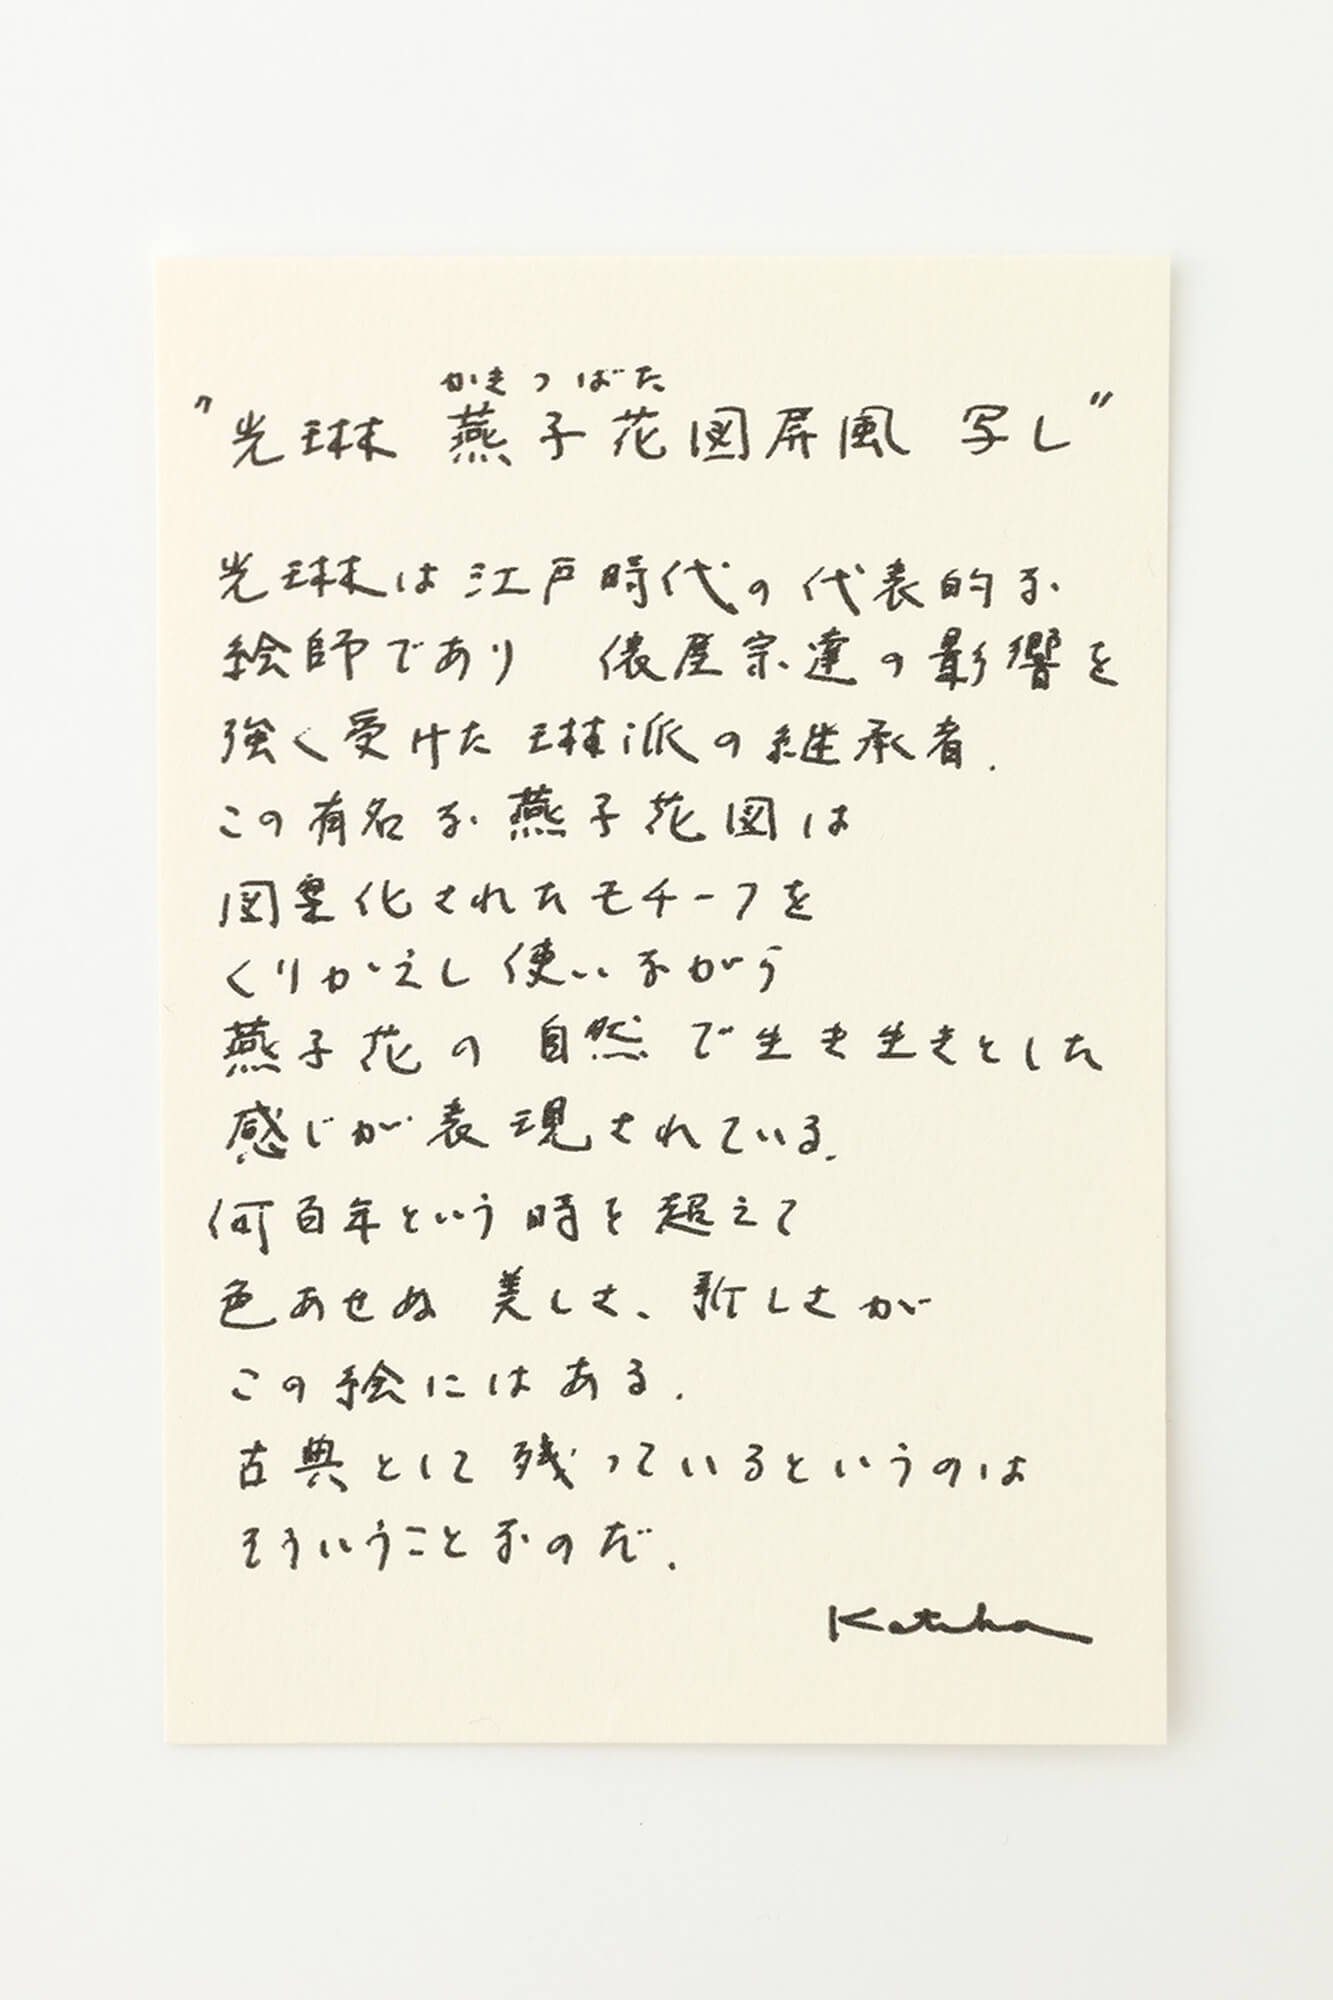 かきつばた
"光琳 燕子花図屏風 写し"
光琳は江戸時代の代表的な
絵師であり 俵屋宗達の影響を
強く受けた 琳派の継承者.
この有名な燕子花図は
図案化されたモチーフを
くりかえし使いながら
燕子花の自然で生き生きとした
感じが表現されている.
何百年という時を超えて
色あせぬ美しさ、新しさが
この絵にはある.
古典として残っているというのは
そういうことなのだ.